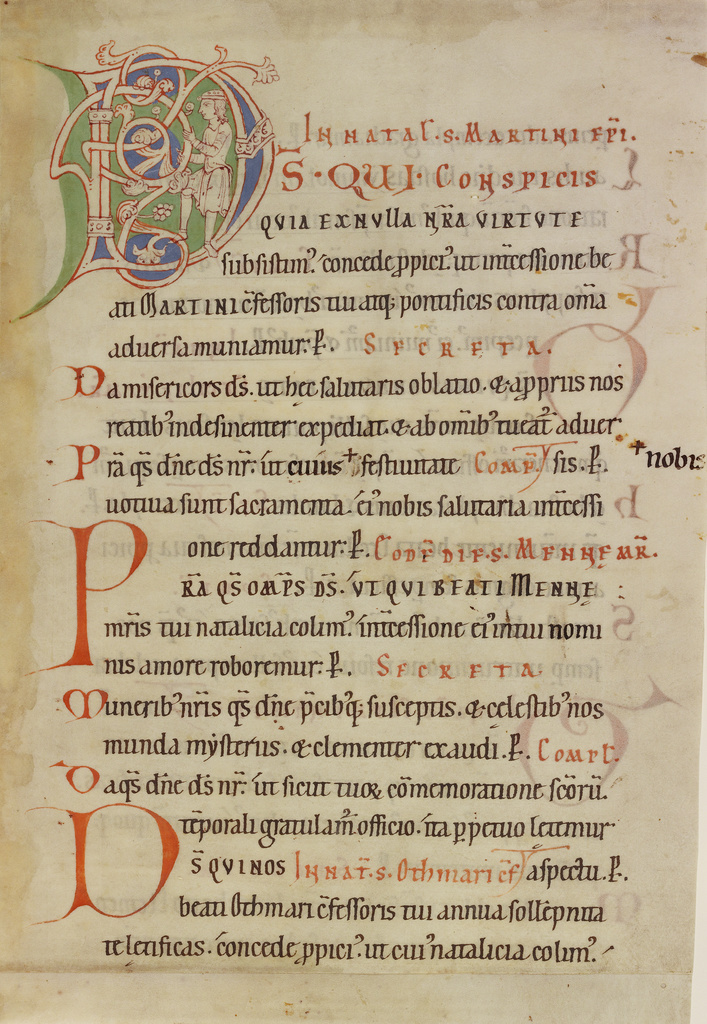 IN NATAL̅. S. MARTINI EPI.
DS̅ · QUI · CONSPICIS
QVIA EX NVLLA NR̅A VIRTVTE
subsistim᷒. concede ꝓpici᷒. ut int̅cessione be
ati MARTINI c̅fessoris tui atq; pontificis contra om̅a
adversa muniamur. P̲. SECRETA.
Da misericors ds̅. ut hec salutaris oblatio. & a ꝓpriis nos
reatib᷒ indesinenter expediat. & ab om̅ib᷒ tueat̅ adver
Pr̅a qs̅ dn̅e ds̅ nr̅. ut cuius + festivitate COMP̅. sis. P̲. + nobis
uotiva sunt sacramenta. ei᷒ nobis salutaria int̅cessi
one reddantur. P̲. EODE̅ DIE. S. MENNE MR̅.
PR̅A QS̅ OMP̅S DS̅. VT QUI BEATI MENNE
mr̅is tui natalicia colim᷒. int̅cessione ei᷒ in tui nomi
nis amore roboremur. P̲. SECRETA.
Munerib᷒ nr̅is qs̅ dn̅e p̅cib᷒q; susceptis. & celestib᷒ nos
munda mysteriis. & clementer exaudi. P̲. COMPL̅.
Da qs̅ dn̅e ds̅ nr̅. ut sicut tuoꝝ co̅memoratione sc̅oru̅.
te̅porali gratulam̅ officio. ita ꝑpetuo letemur
DS̅ QVI NOS IN NAT̅. S. Othmari c̅f aspectu. P̲.
beati Othmari c̅fessoris tui annua solle̅pnita
te letificas. concede ꝓpici᷒. ut cui᷒ natalicia colim᷒.